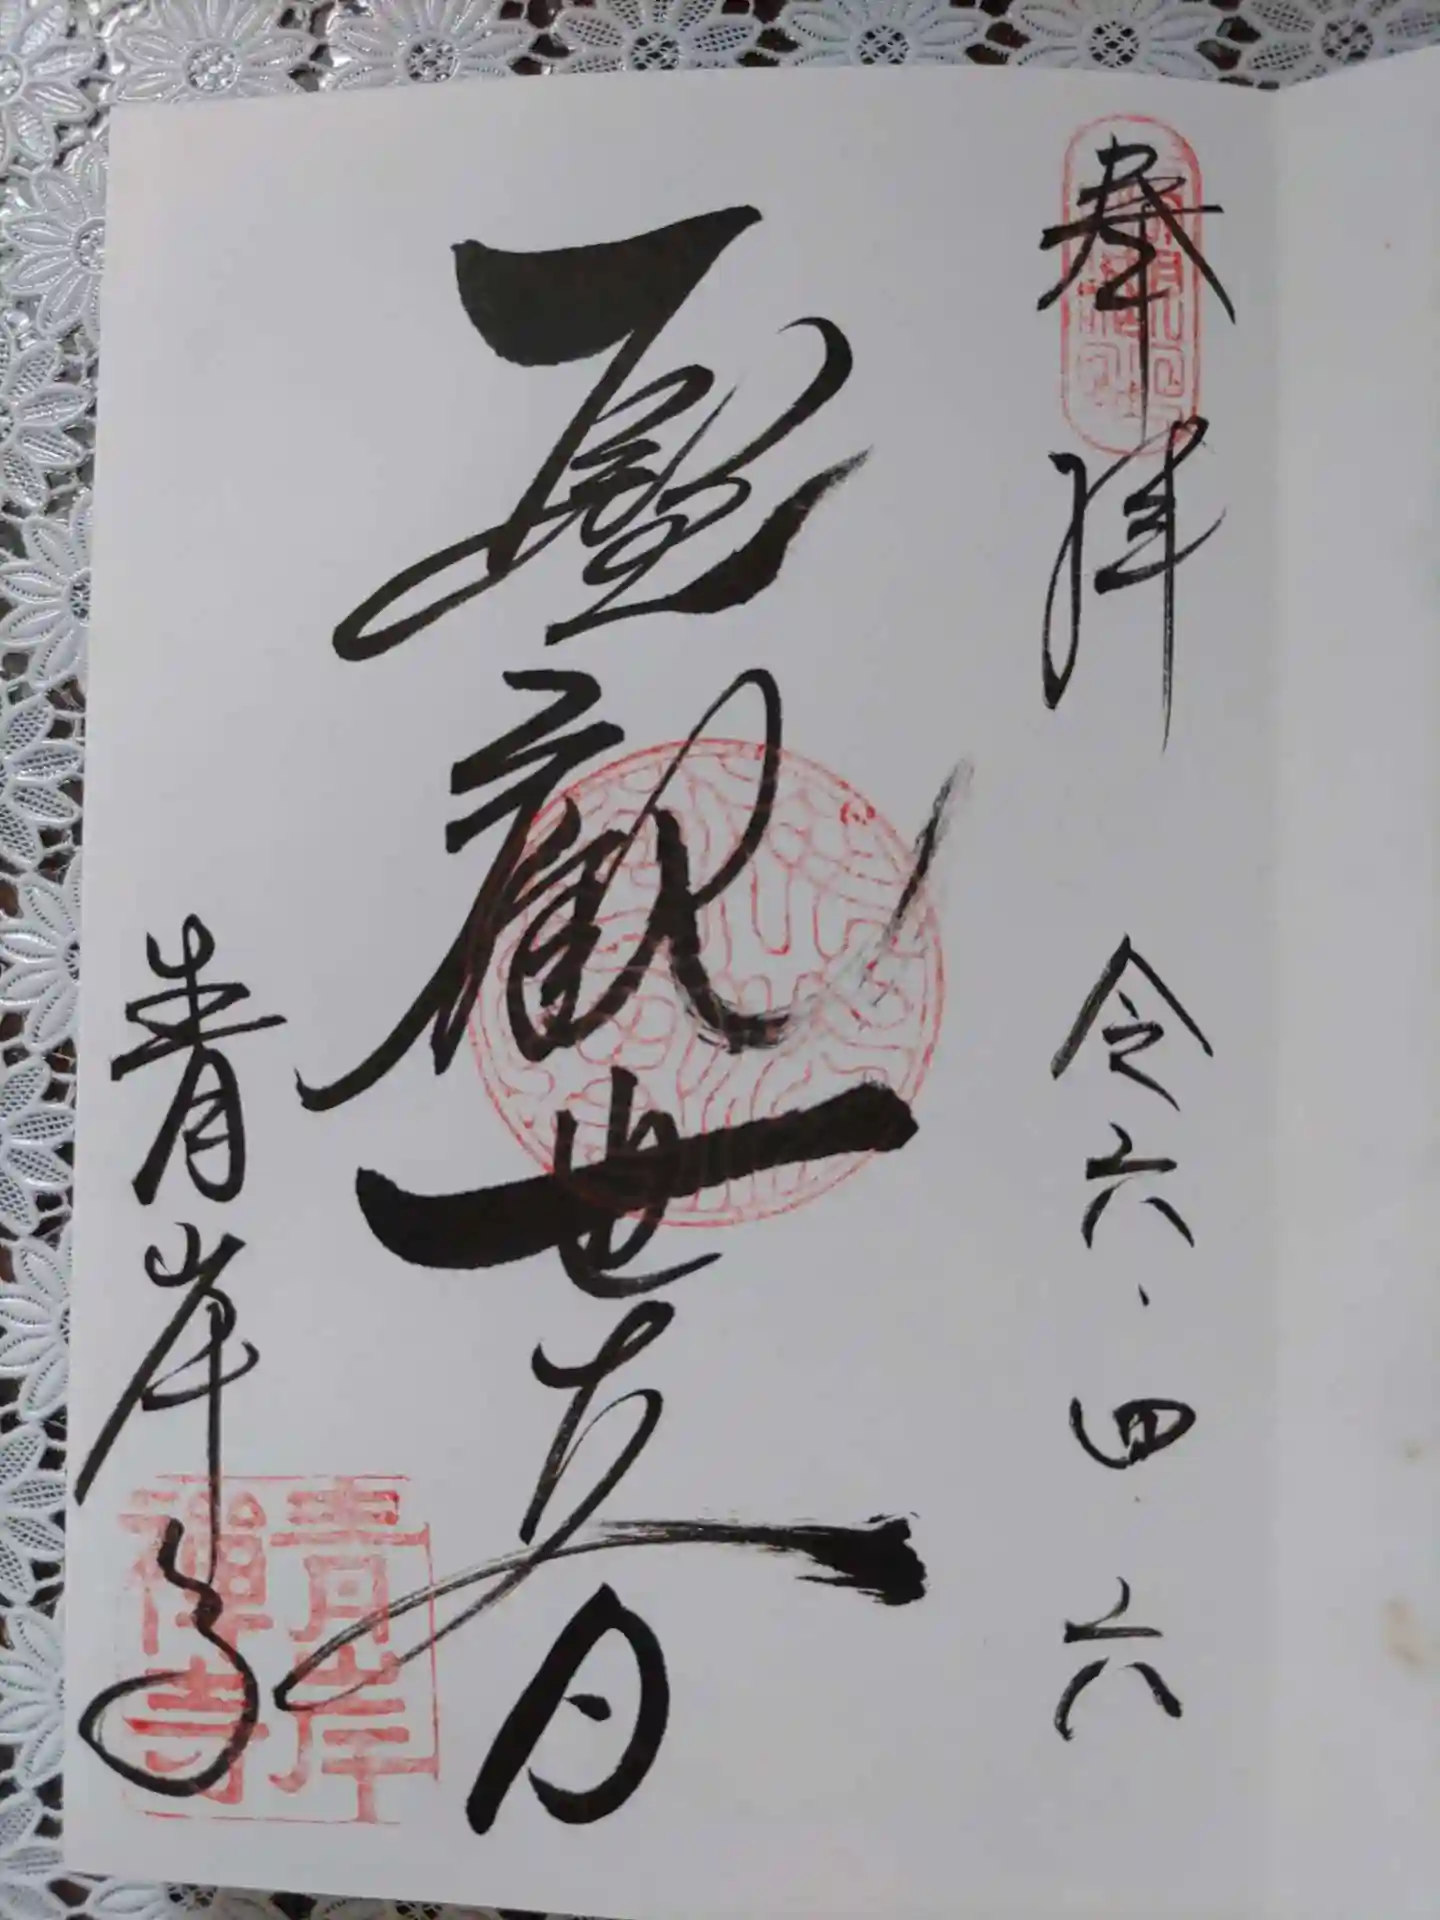 奉拝
令六・四・六
聖観世音
青岸寺
青岸
禪寺